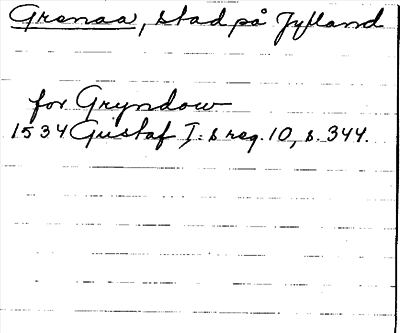 Grenaa, stad på Jylland
for Gryndow
1534 Gustaf I:s reg. 10, s. 344.